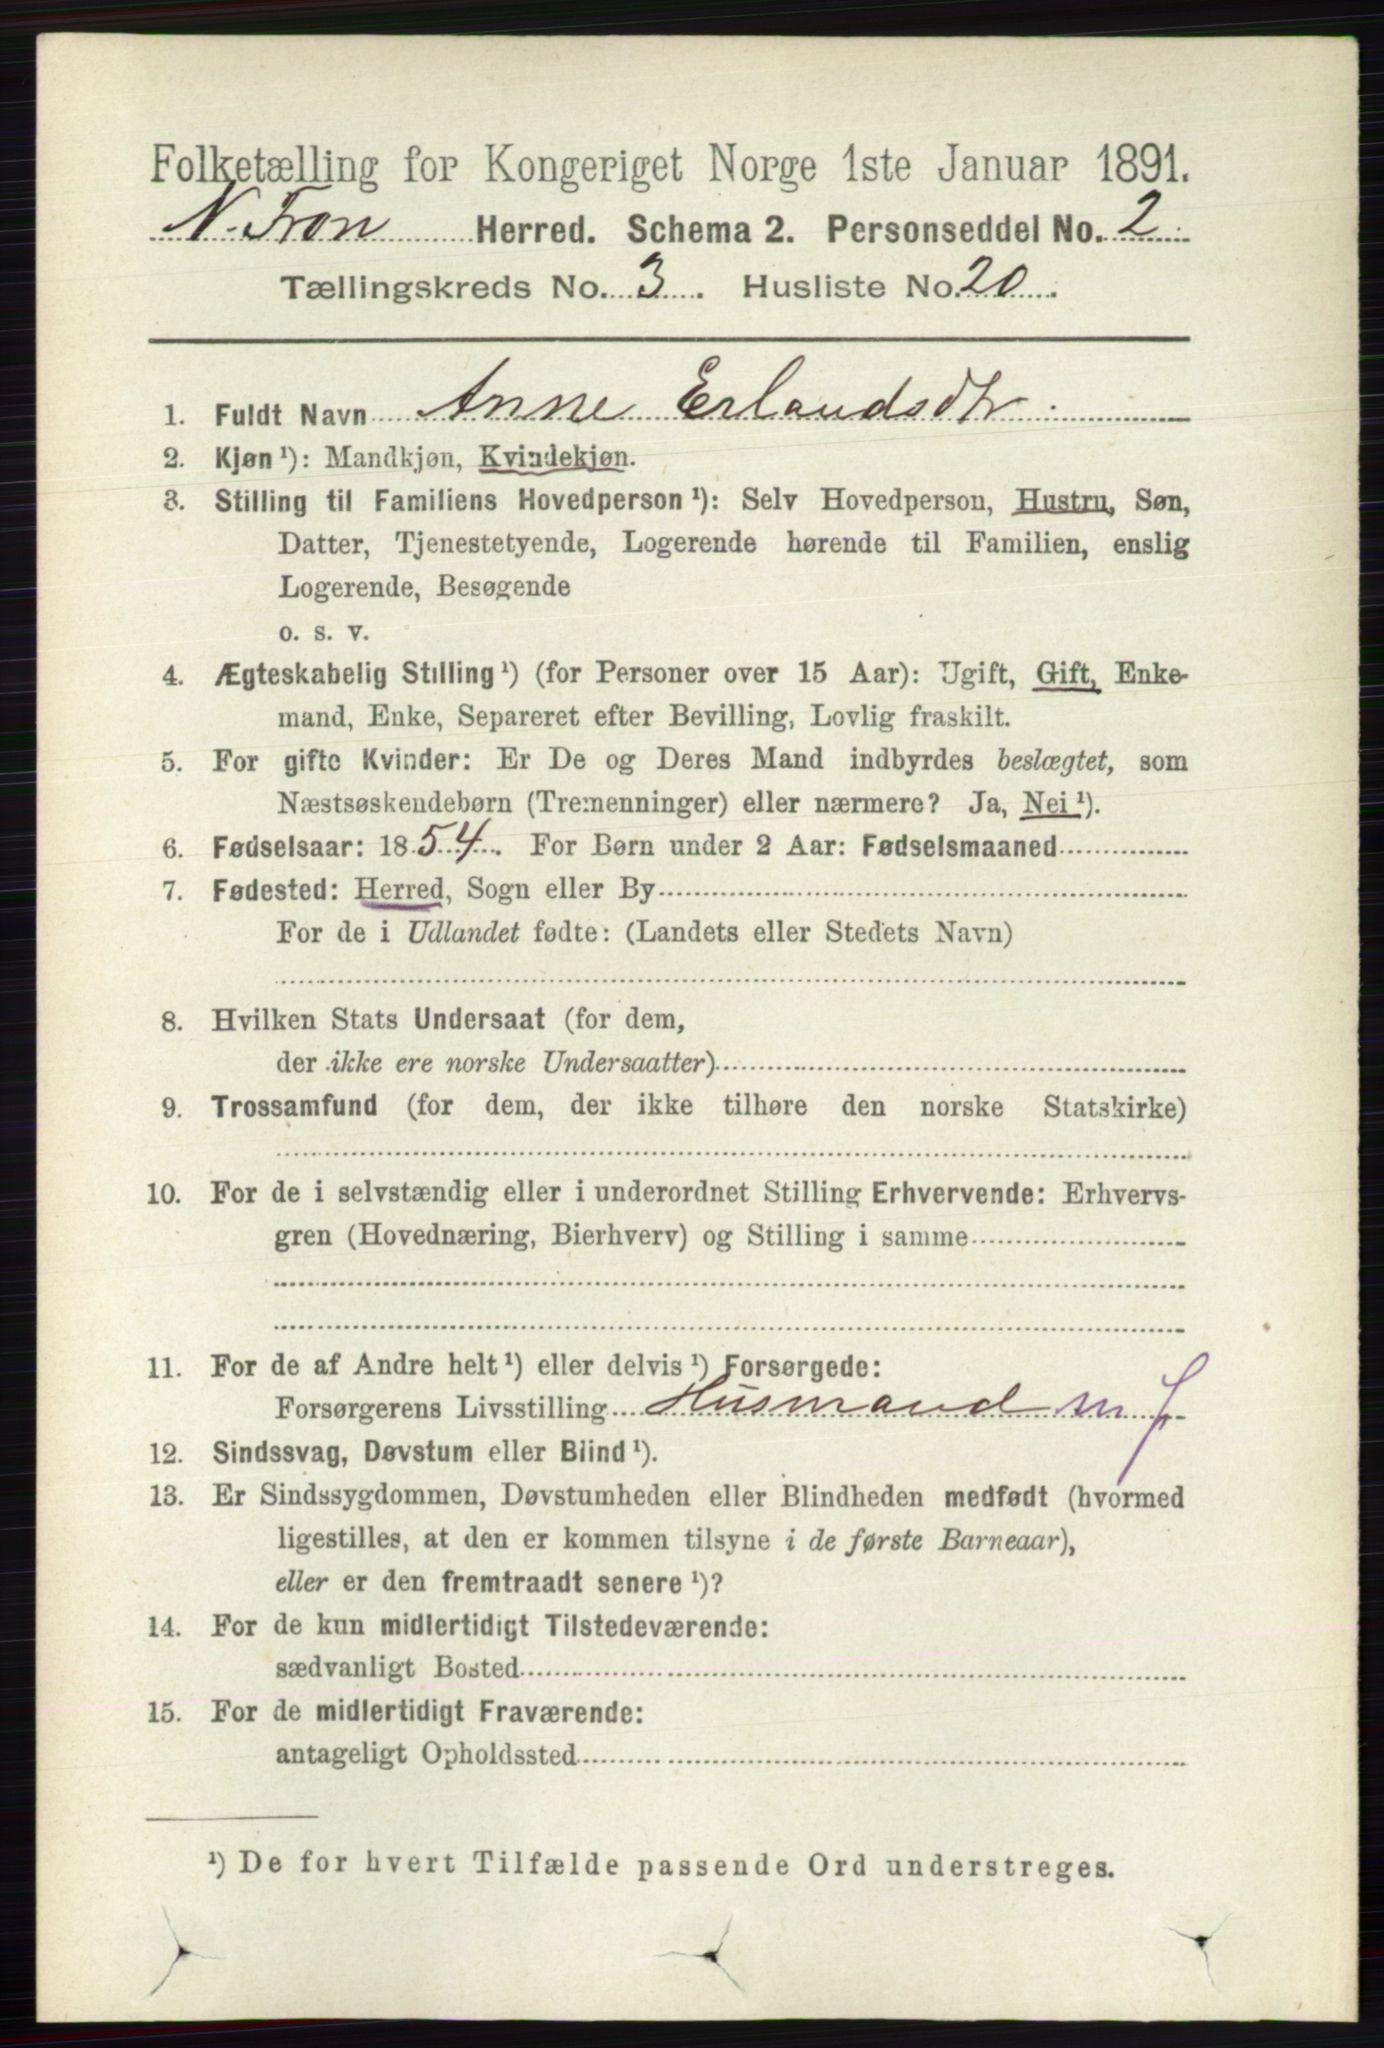 Folketælling for Kongeriget Norge 1ste Januar 1891.
N. Fron Herred. Schema 2. Personseddel No. 2
Tællingskreds No. 3. Husliste No. 20.
1. Fuldt Navn Anne Erlandsdtr.
2. Kjøn ¹): Mandkjøn, Kvindekjøn.
3. Stilling til Familiens Hovedperson ¹): Selv Hovedperson, Hustru, Søn,
Datter, Tjenestetyende, Logerende hørende til Familien, enslig
Logerende, Besøgende
o. s. v.
4. Ægteskabelig Stilling ¹) (for Personer over 15 Aar): Ugift, Gift, Enke-
mand, Enke, Separeret efter Bevilling, Lovlig fraskilt.
5. For gifte Kvinder: Er De og Deres Mand indbyrdes beslægtet, som
Næstsøskendebørn (Tremenninger) eller nærmere? Ja, Nei ¹).
6. Fødselsaar: 1854. For Børn under 2 Aar: Fødselsmaaned
7. Fødested: Herred, Sogn eller By
For de i Udlandet fødte: (Landets eller Stedets Navn)
8. Hvilken Stats Undersaat (for dem,
der ikke ere norske Undersaatter)
9. Trossamfund (for dem, der ikke tilhøre den norske Statskirke)
10. For de i selvstændig eller i underordnet Stilling Erhvervende: Erhvervs-
gren (Hovednæring, Bierhverv) og Stilling i samme
11. For de af Andre helt ¹) eller delvis ¹) Forsørgede:
Forsørgerens Livsstilling Husmand m J
12. Sindssvag, Døvstum eller Blind ¹).
13. Er Sindssygdommen, Døvstumheden eller Blindheden medfødt (hvormed
ligestilles, at den er kommen tilsyne i de første Barneaar),
eller er den fremtraadt senere ¹)?
14. For de kun midlertidigt Tilstedeværende:
sædvanligt Bosted
15. For de midlertidigt Fraværende:
antageligt Opholdssted
¹) De for hvert Tilfælde passende Ord understreges.